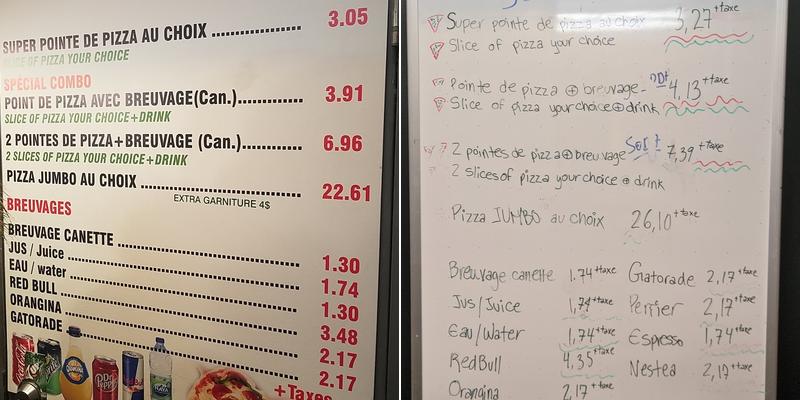 SUPER POINTE DE PIZZA AU CHOIX .................... 3.05
SLICE OF PIZZA YOUR CHOICE
SPÉCIAL COMBO
POINT DE PIZZA AVEC BREUVAGE(Can.).............. 3.91
SLICE OF PIZZA YOUR CHOICE+DRINK
2 POINTES DE PIZZA+BREUVAGE (Can.)............ 6.96
2 SLICES OF PIZZA YOUR CHOICE+DRINK
PIZZA JUMBO AU CHOIX .................................... 22.61
EXTRA GARNITURE 4$
BREUVAGES
BREUVAGE CANETTE ........................................ 1.30
JUS / Juice ........................................ 1.74
EAU / water ........................................ 1.30
RED BULL ........................................ 3.48
ORANGINA ........................................ 2.17
GATORADE ........................................ 2.17
+Taxes
Super pointe de pizza au choix 3,27 +taxe
Slice of pizza your choice
Pointe de pizza + breuvage - 4,13 +taxe
Slice of pizza your choice + drink
2 pointes de pizza + breuvage 7,39 +taxe
2 slices of pizza your choice + drink
Pizza JUMBO au choix 26,10 +taxe
Breuvage canette 1.74 +taxe Gatorade 2,17 +taxe
Jus/Juice 1,74 +taxe Perrier 2,17 +taxe
Eau/Water 1,74 +taxe Espresso 1,74 +taxe
RedBull 4,35 +taxe Nestea 2,17 +taxe
Orangina 2,17 +taxe